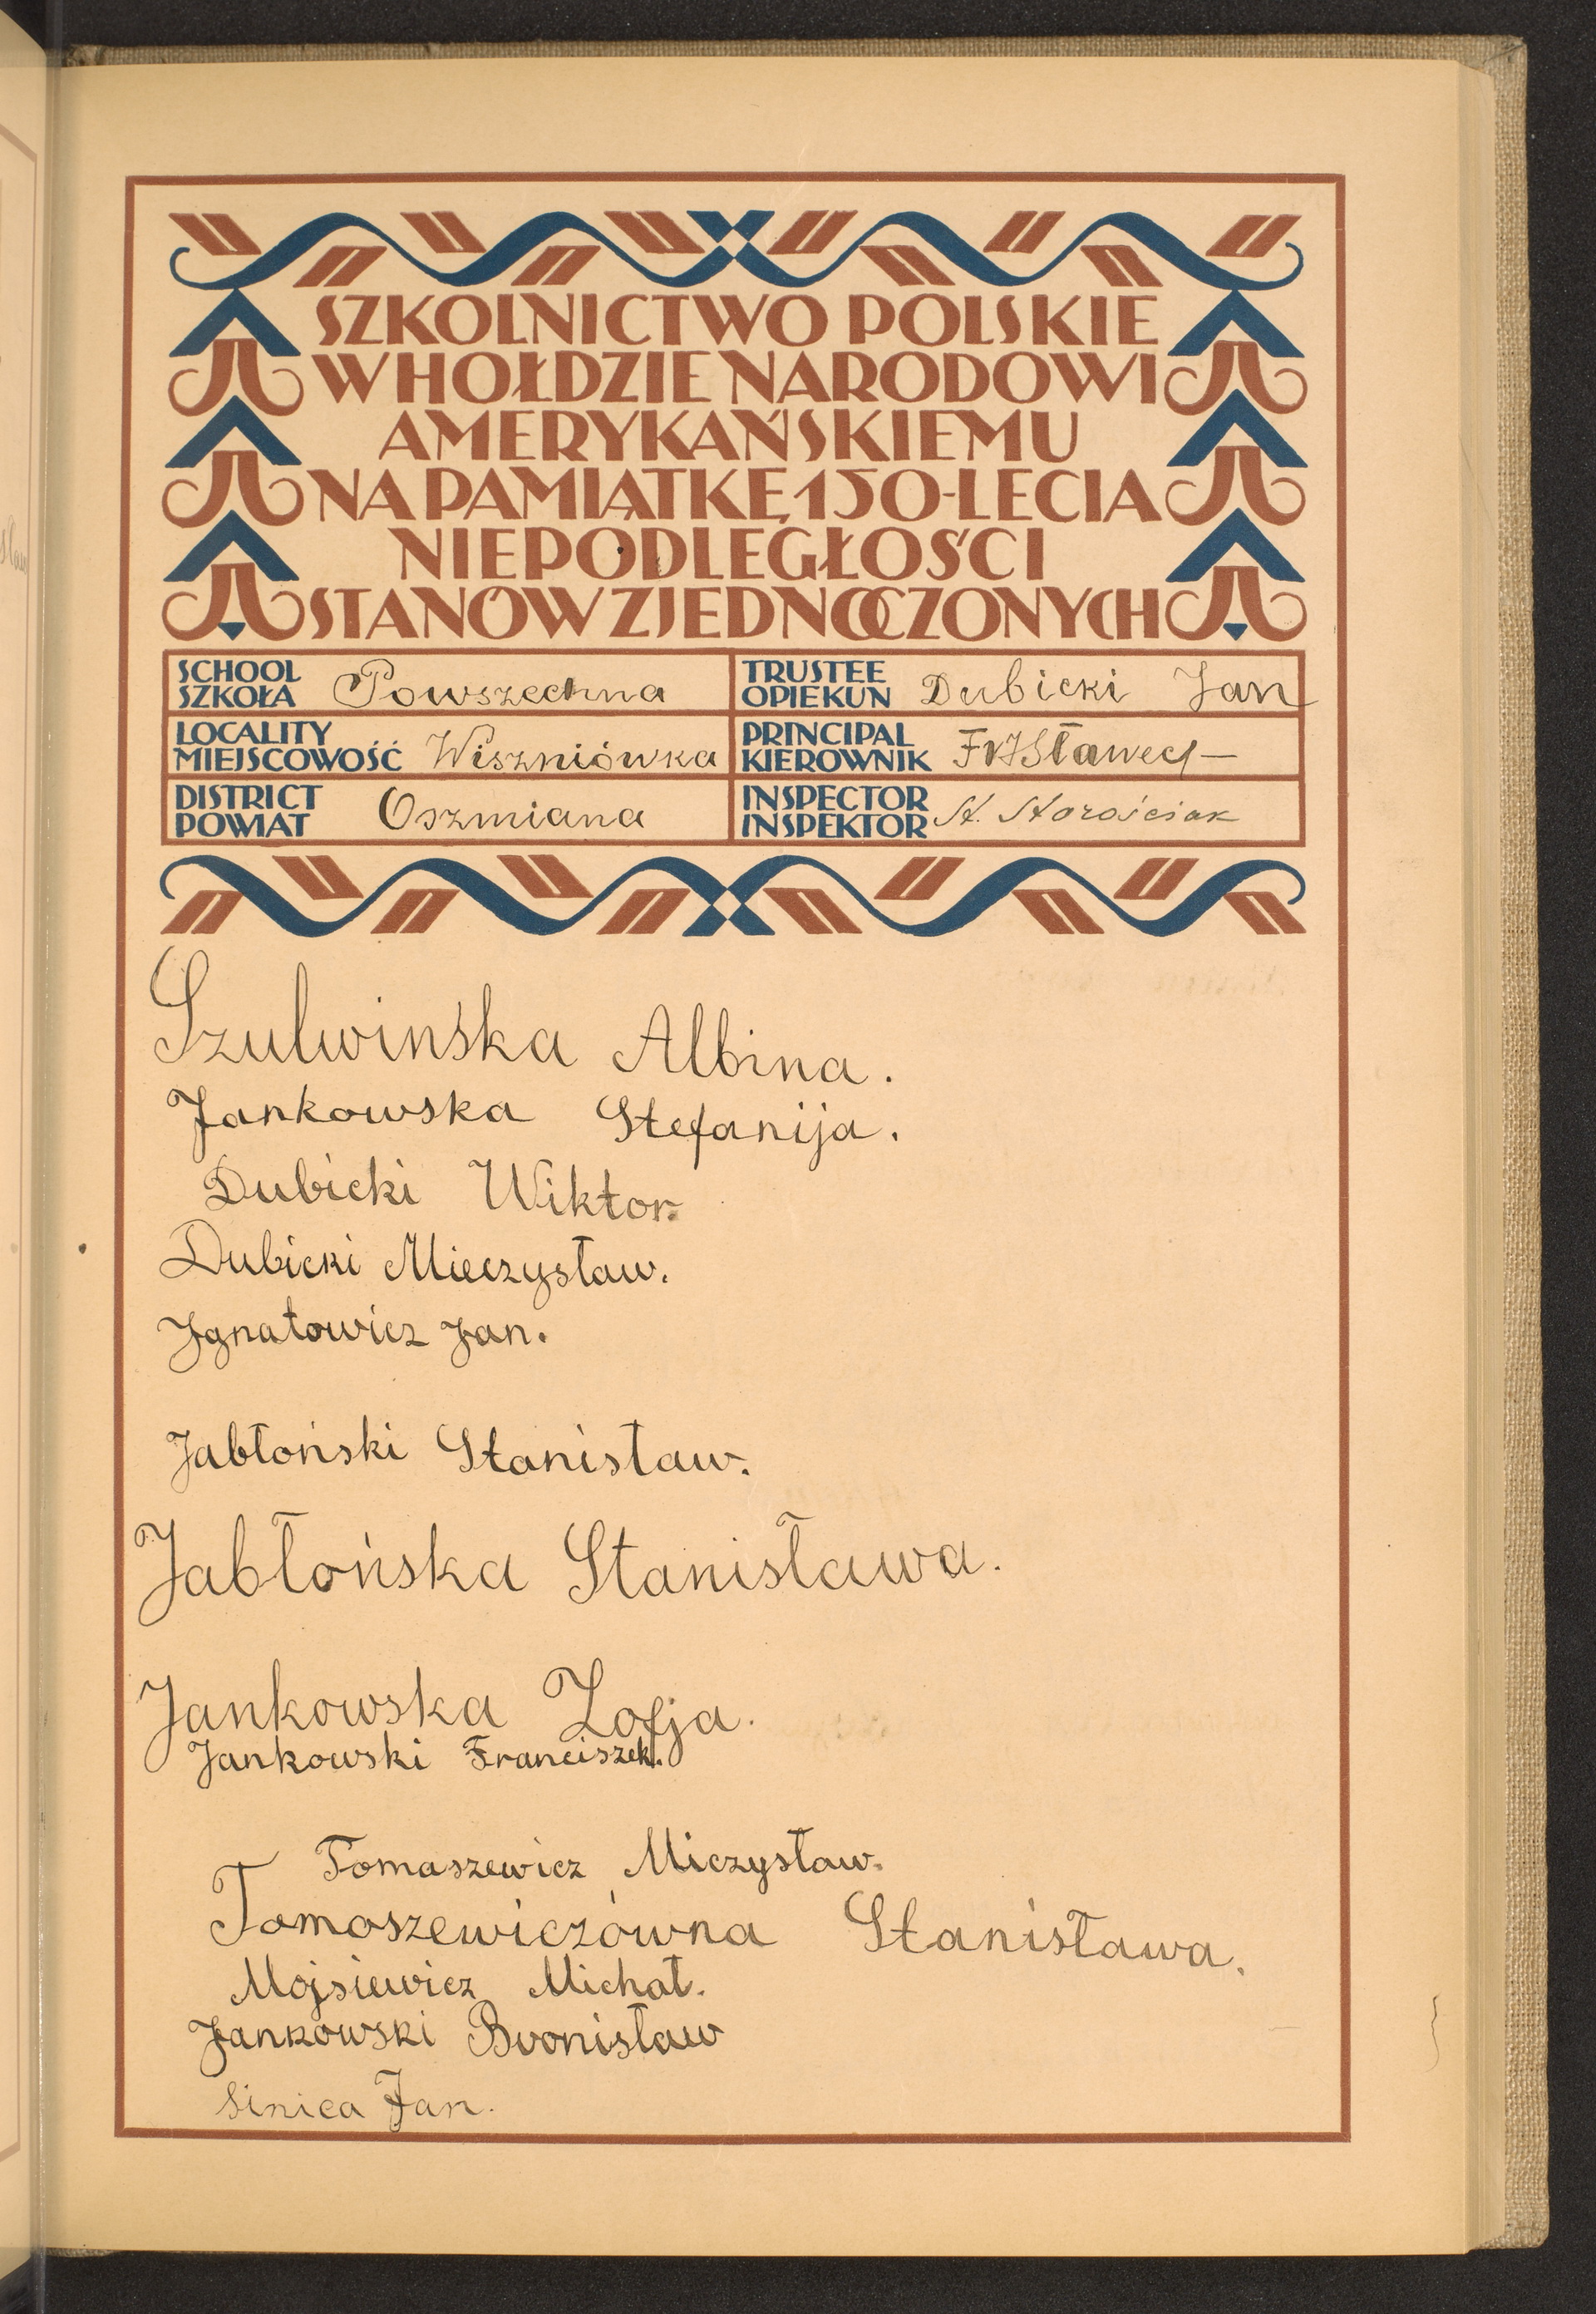 SZKOLNICTWO POLSKIE
W HOŁDZIE NARODOWI
AMERYKAŃSKIEMU
NA PAMIĄTKĘ 150-LECIA
NIEPODLEGŁOŚCI
STANÓW ZJEDNOCZONYCH
SCHOOL
SZKOŁA Powszechna
TRUSTEE
OPIEKUN Dubicki Jan
LOCALITY
MIEJSCOWOŚĆ Wiszniówka
PRINCIPAL
KIEROWNIK
DISTRICT
POWIAT Oszmiana
INSPECTOR
INSPEKTOR St. Starościak
Szulwińska Albina.
Jankowska Stefanija.
Dubicki Wiktor.
Dubicki Mieczysław.
Jgnatowicz Jan.
Jabłoński Stanisław.
Jabłońska Stanisława.
Jankowska Zofja.
Jankowski Franciszek.
Tomaszewicz Miczysław.
Tomaszewiczówna Stanisława.
Mojsiewicz Michał.
Jankowski Bronisław
Sinica Jan.